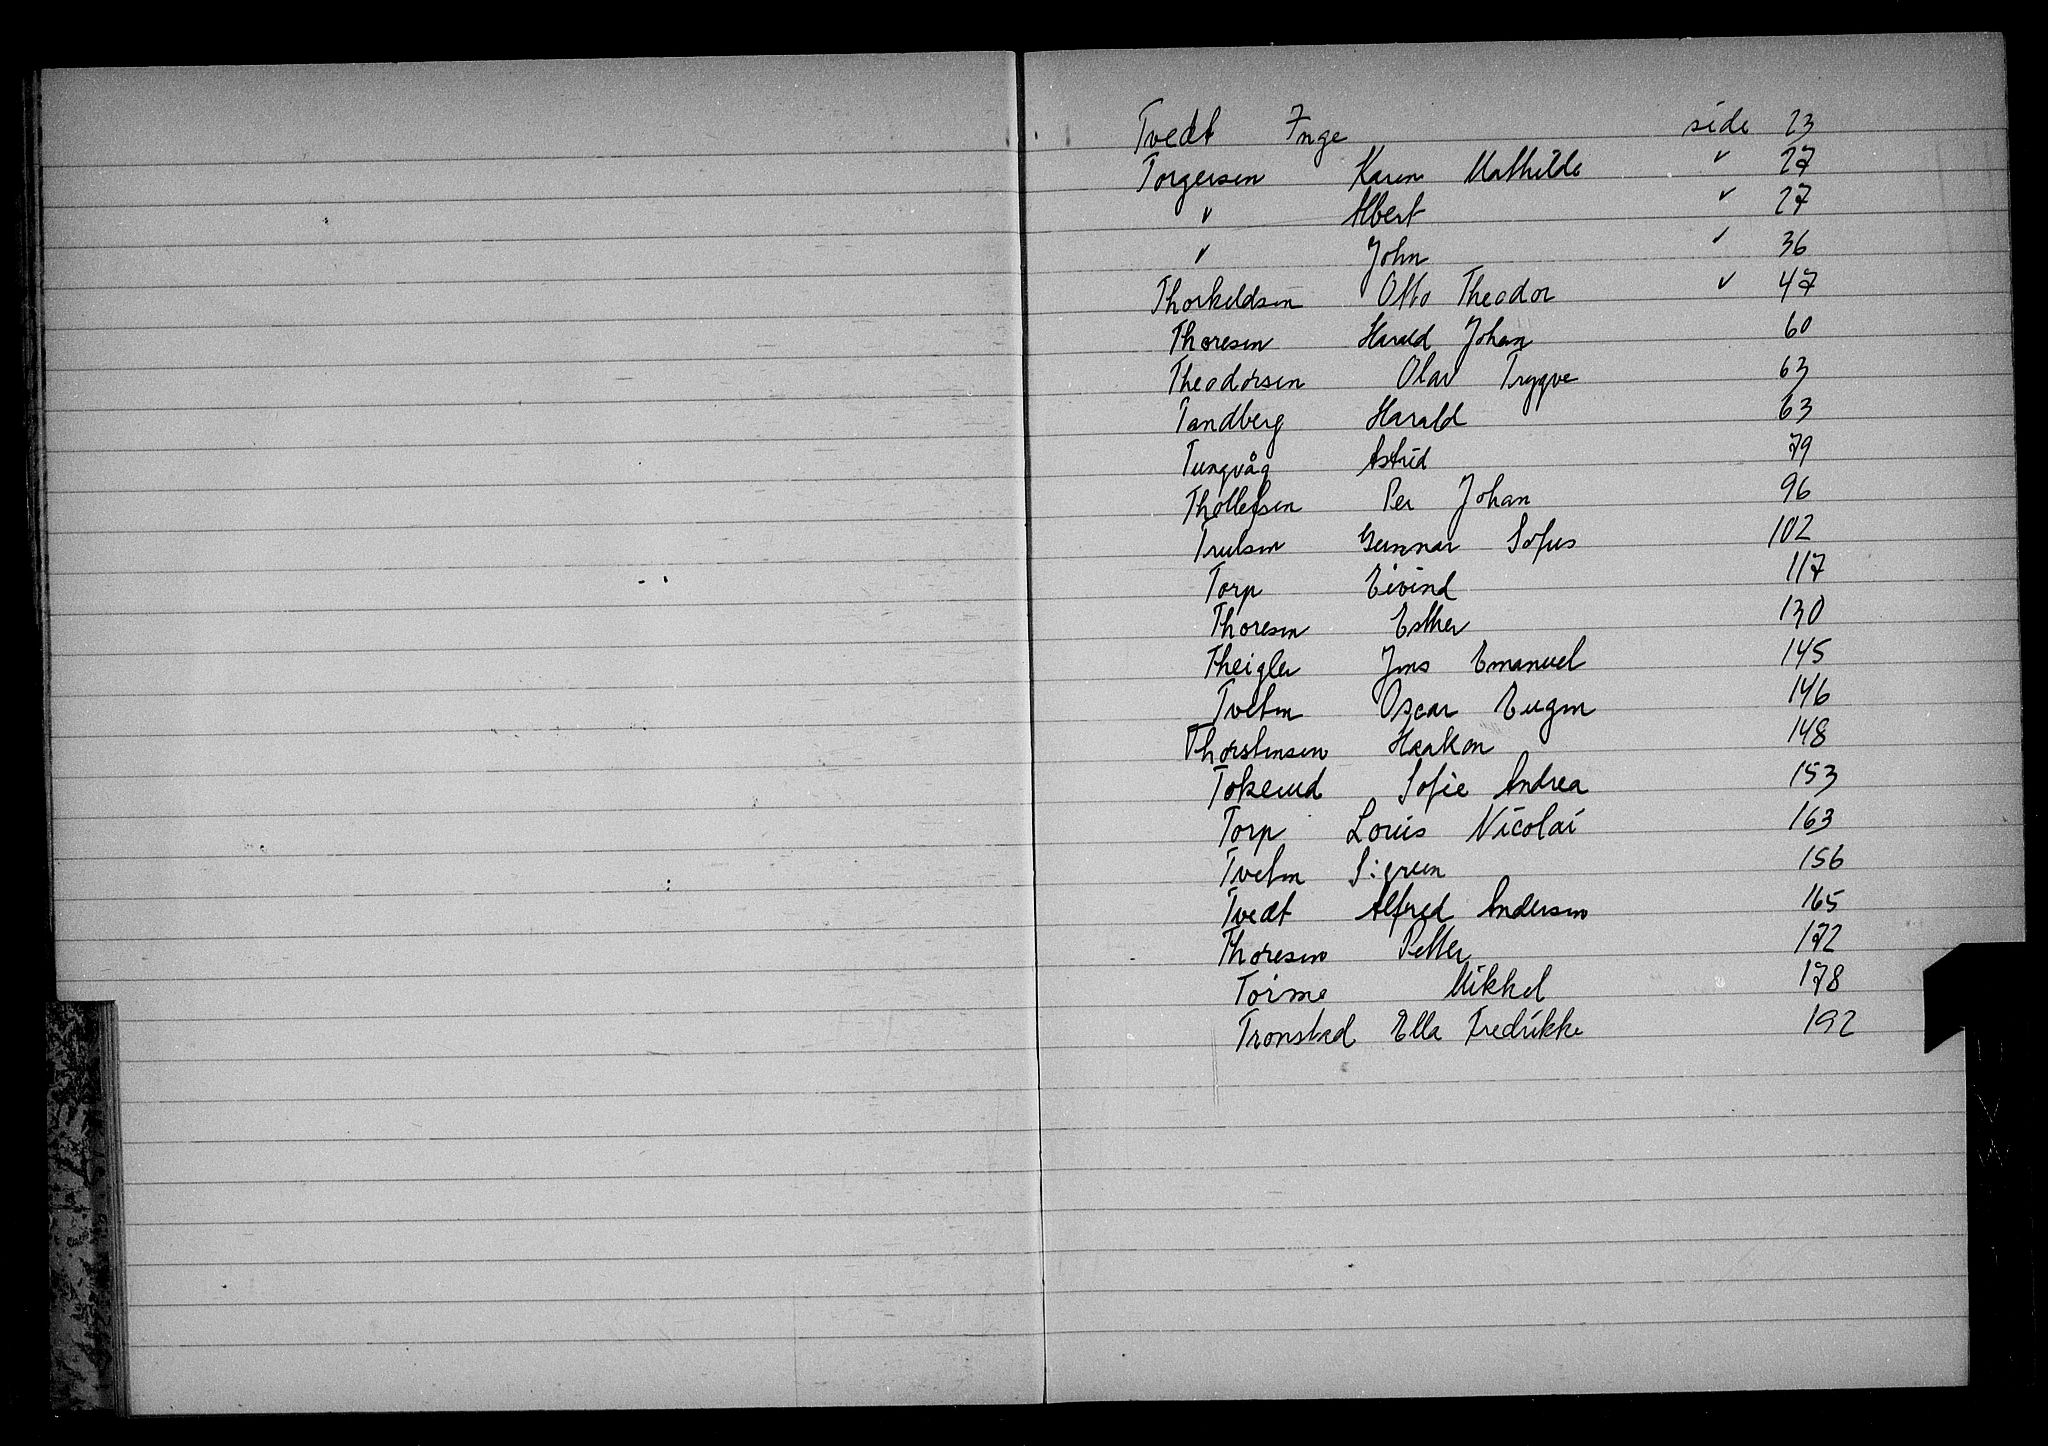 Tvedt Inge side 23
Torgersen Karen Mathilde " 27
" Albert " 27
" John " 36
Thorkeldsen Otto Theodor " 47
Thoresen Harald Johan 60
Theodorsen Olav Trygve 63
Tandberg Harald 63
Tungvåg Astrid 79
Thollefsen Per Johan 96
Trulsen Gunnar Sofus 102
Torp Eivind 117
Thoresen Esther 130
Theigler Jens Emanuel 145
Tveten Oscar Eugen 146
Thorstensen Haakon 148
Tokerud Sofie Andrea 153
Torp Louis Nicolai 163
Tveten Sigrun 156
Tvedt Alfred Andersen 165
Thoresen Petter 172
Mikkel 178
Tronstad Ella Fredrikke 192
V
W